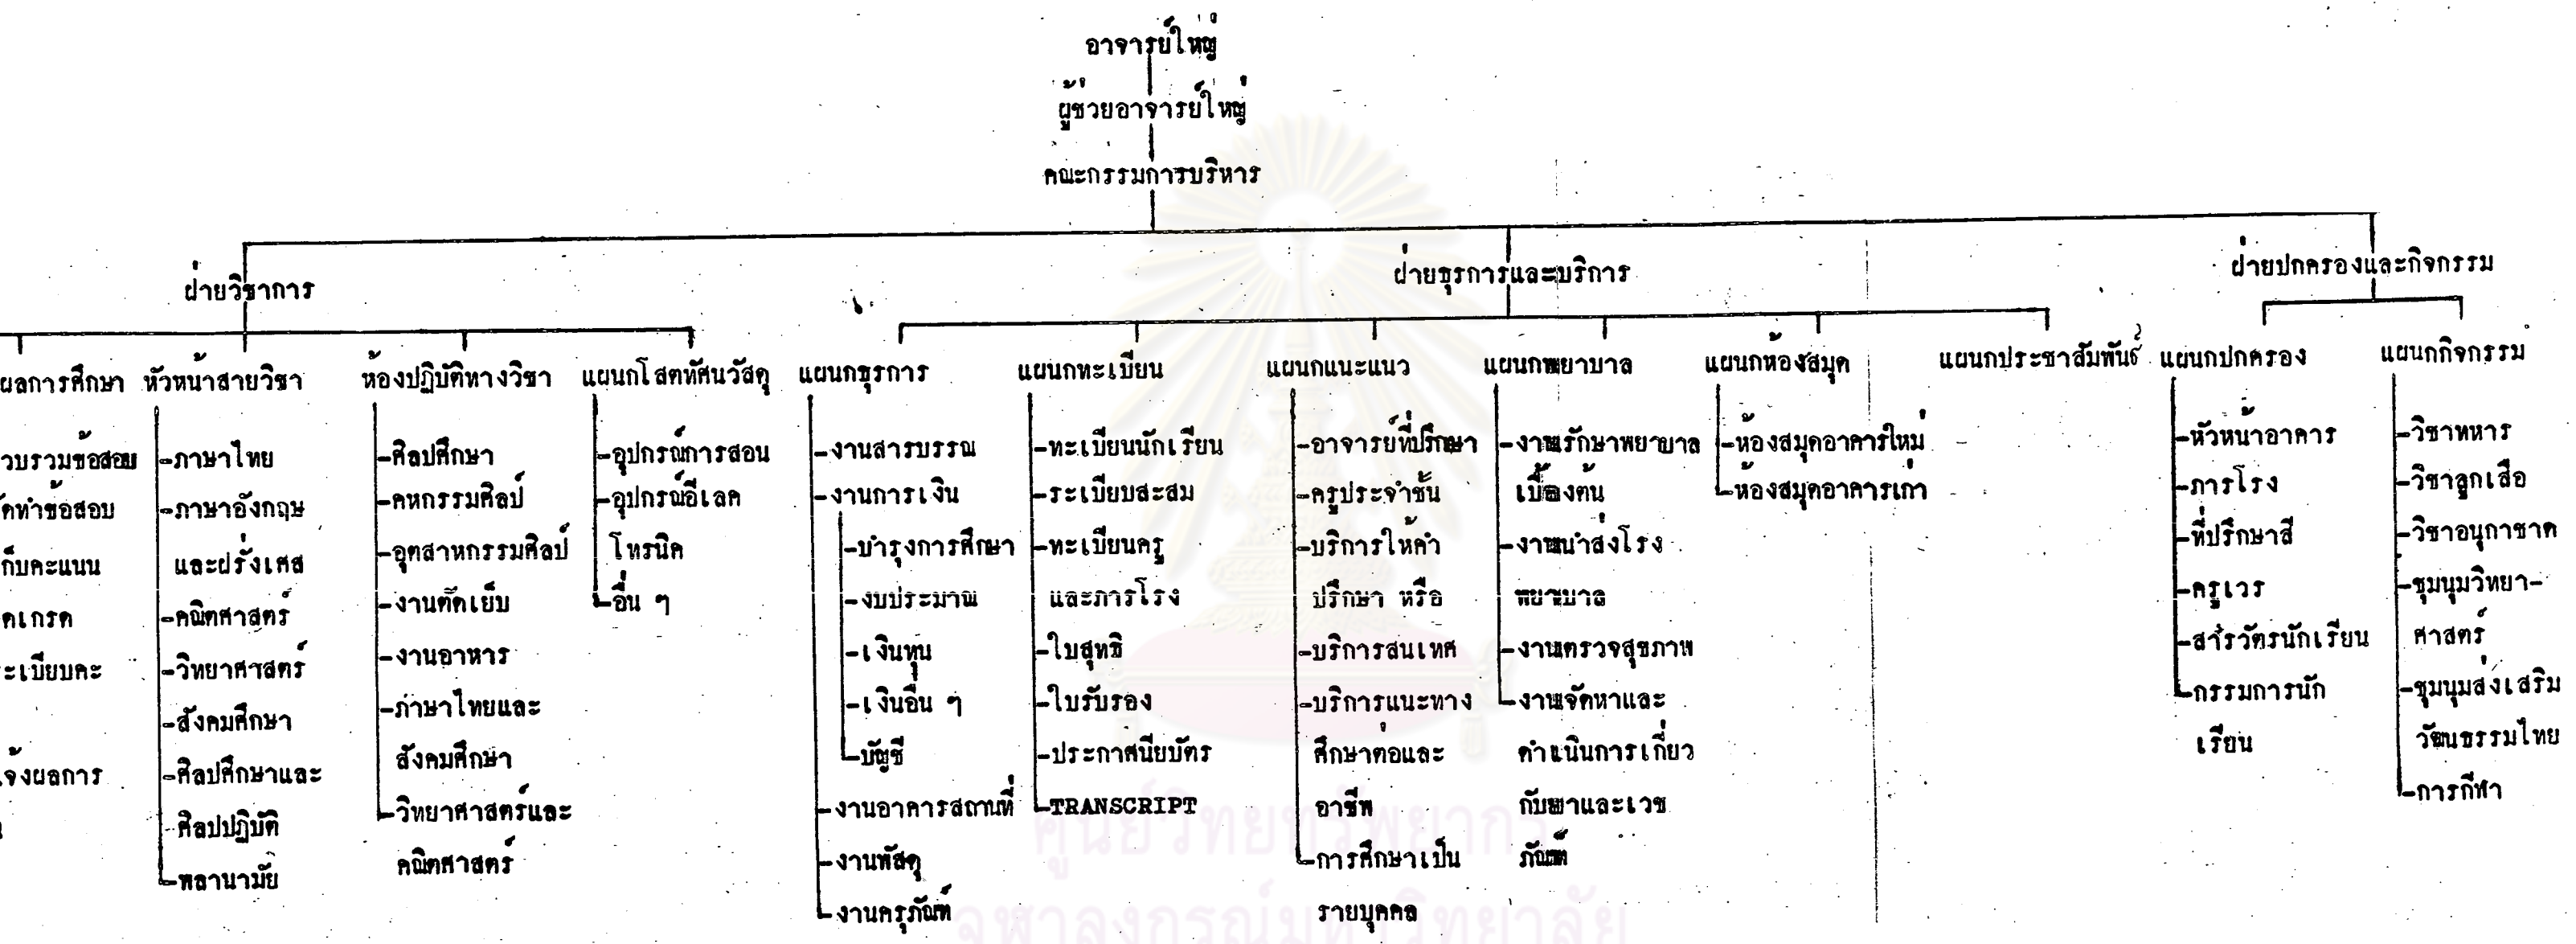 อาจารย์ใหญ่
ผู้ช่วยอาจารย์ใหญ่
คณะกรรมการบริหาร
ฝ่ายวิชาการ
ฝ่ายธุรการและบริการ
ฝ่ายปกครองและกิจกรรม
ผลการศึกษา
วบรวมข้อสอบ
ัดทำข้อสอบ
ก็บคะแนน
ดเกรด
ะเบียบคะ
จ้งผลการ
หัวหน้าสายวิชา
-ภาษาไทย
-ภาษาอังกฤษ
และฝรั่งเศส
-คณิตศาสตร์
-วิทยาศาสตร์
-สังคมศึกษา
-ศิลปศึกษาและ
ศิลปปฏิบัติ
-พลานามัย
ห้องปฏิบัติทางวิชา
-ศิลปศึกษา
-คหกรรมศิลป์
-อุตสาหกรรมศิลป์
-งานตัดเย็บ
-งานอาหาร
-ภาษาไทยและ
สังคมศึกษา
-วิทยาศาสตร์และ
คณิตศาสตร์
แผนกโสตทัศนวัสดุ
-อุปกรณ์การสอน
-อุปกรณ์อีเลค
โทรนิค
-อื่น ๆ
แผนกธุรการ
-งานสารบรรณ
-งานการเงิน
-บำรุงการศึกษา
-งบประมาณ
-เงินทุน
-เงินอื่น ๆ
-บัญชี
-งานอาคารสถานที่
-งานพัสดุ
-งานครุภัณฑ์
แผนกทะเบียน
-ทะเบียนนักเรียน
-ระเบียบสะสม
-ทะเบียนครู
และภารโรง
-ใบสุทธิ
-ใบรับรอง
-ประกาศนียบัตร
-TRANSCRIPT
แผนกแนะแนว
-อาจารย์ที่ปรึกษา
-ครูประจำชั้น
-บริการให้คำ
ปรึกษา หรือ
-บริการสนเทศ
-บริการแนะทาง
ศึกษาต่อและ
อาชีพ
-การศึกษาเป็น
รายบุคคล
แผนกพยาบาล
-งานรักษาพยาบาล
เบื้องต้น
-งานนำส่งโรง
พยาบาล
-งานตรวจสุขภาพ
-งานจัดหาและ
ดำเนินการเกี่ยว
กับยาและเวช
ภัณฑ์
แผนกห้องสมุด
-ห้องสมุดอาคารใหม่
-ห้องสมุดอาคารเก่า
แผนกประชาสัมพันธ์
แผนกปกครอง
-หัวหน้าอาคาร
-ภารโรง
-ที่ปรึกษาสี
-ครูเวร
-สารวัตรนักเรียน
-กรรมการนัก
เรียน
แผนกกิจกรรม
-วิชาทหาร
-วิชาลูกเสือ
-วิชาอนุกาชาด
-ชุมนุมวิทยา-
ศาสตร์
-ชุมนุมส่งเสริม
วัฒนธรรมไทย
-การกีฬา
ศูนย์วิทยทรัพยากร
จุฬาลงกรณ์มหาวิทยาลัย